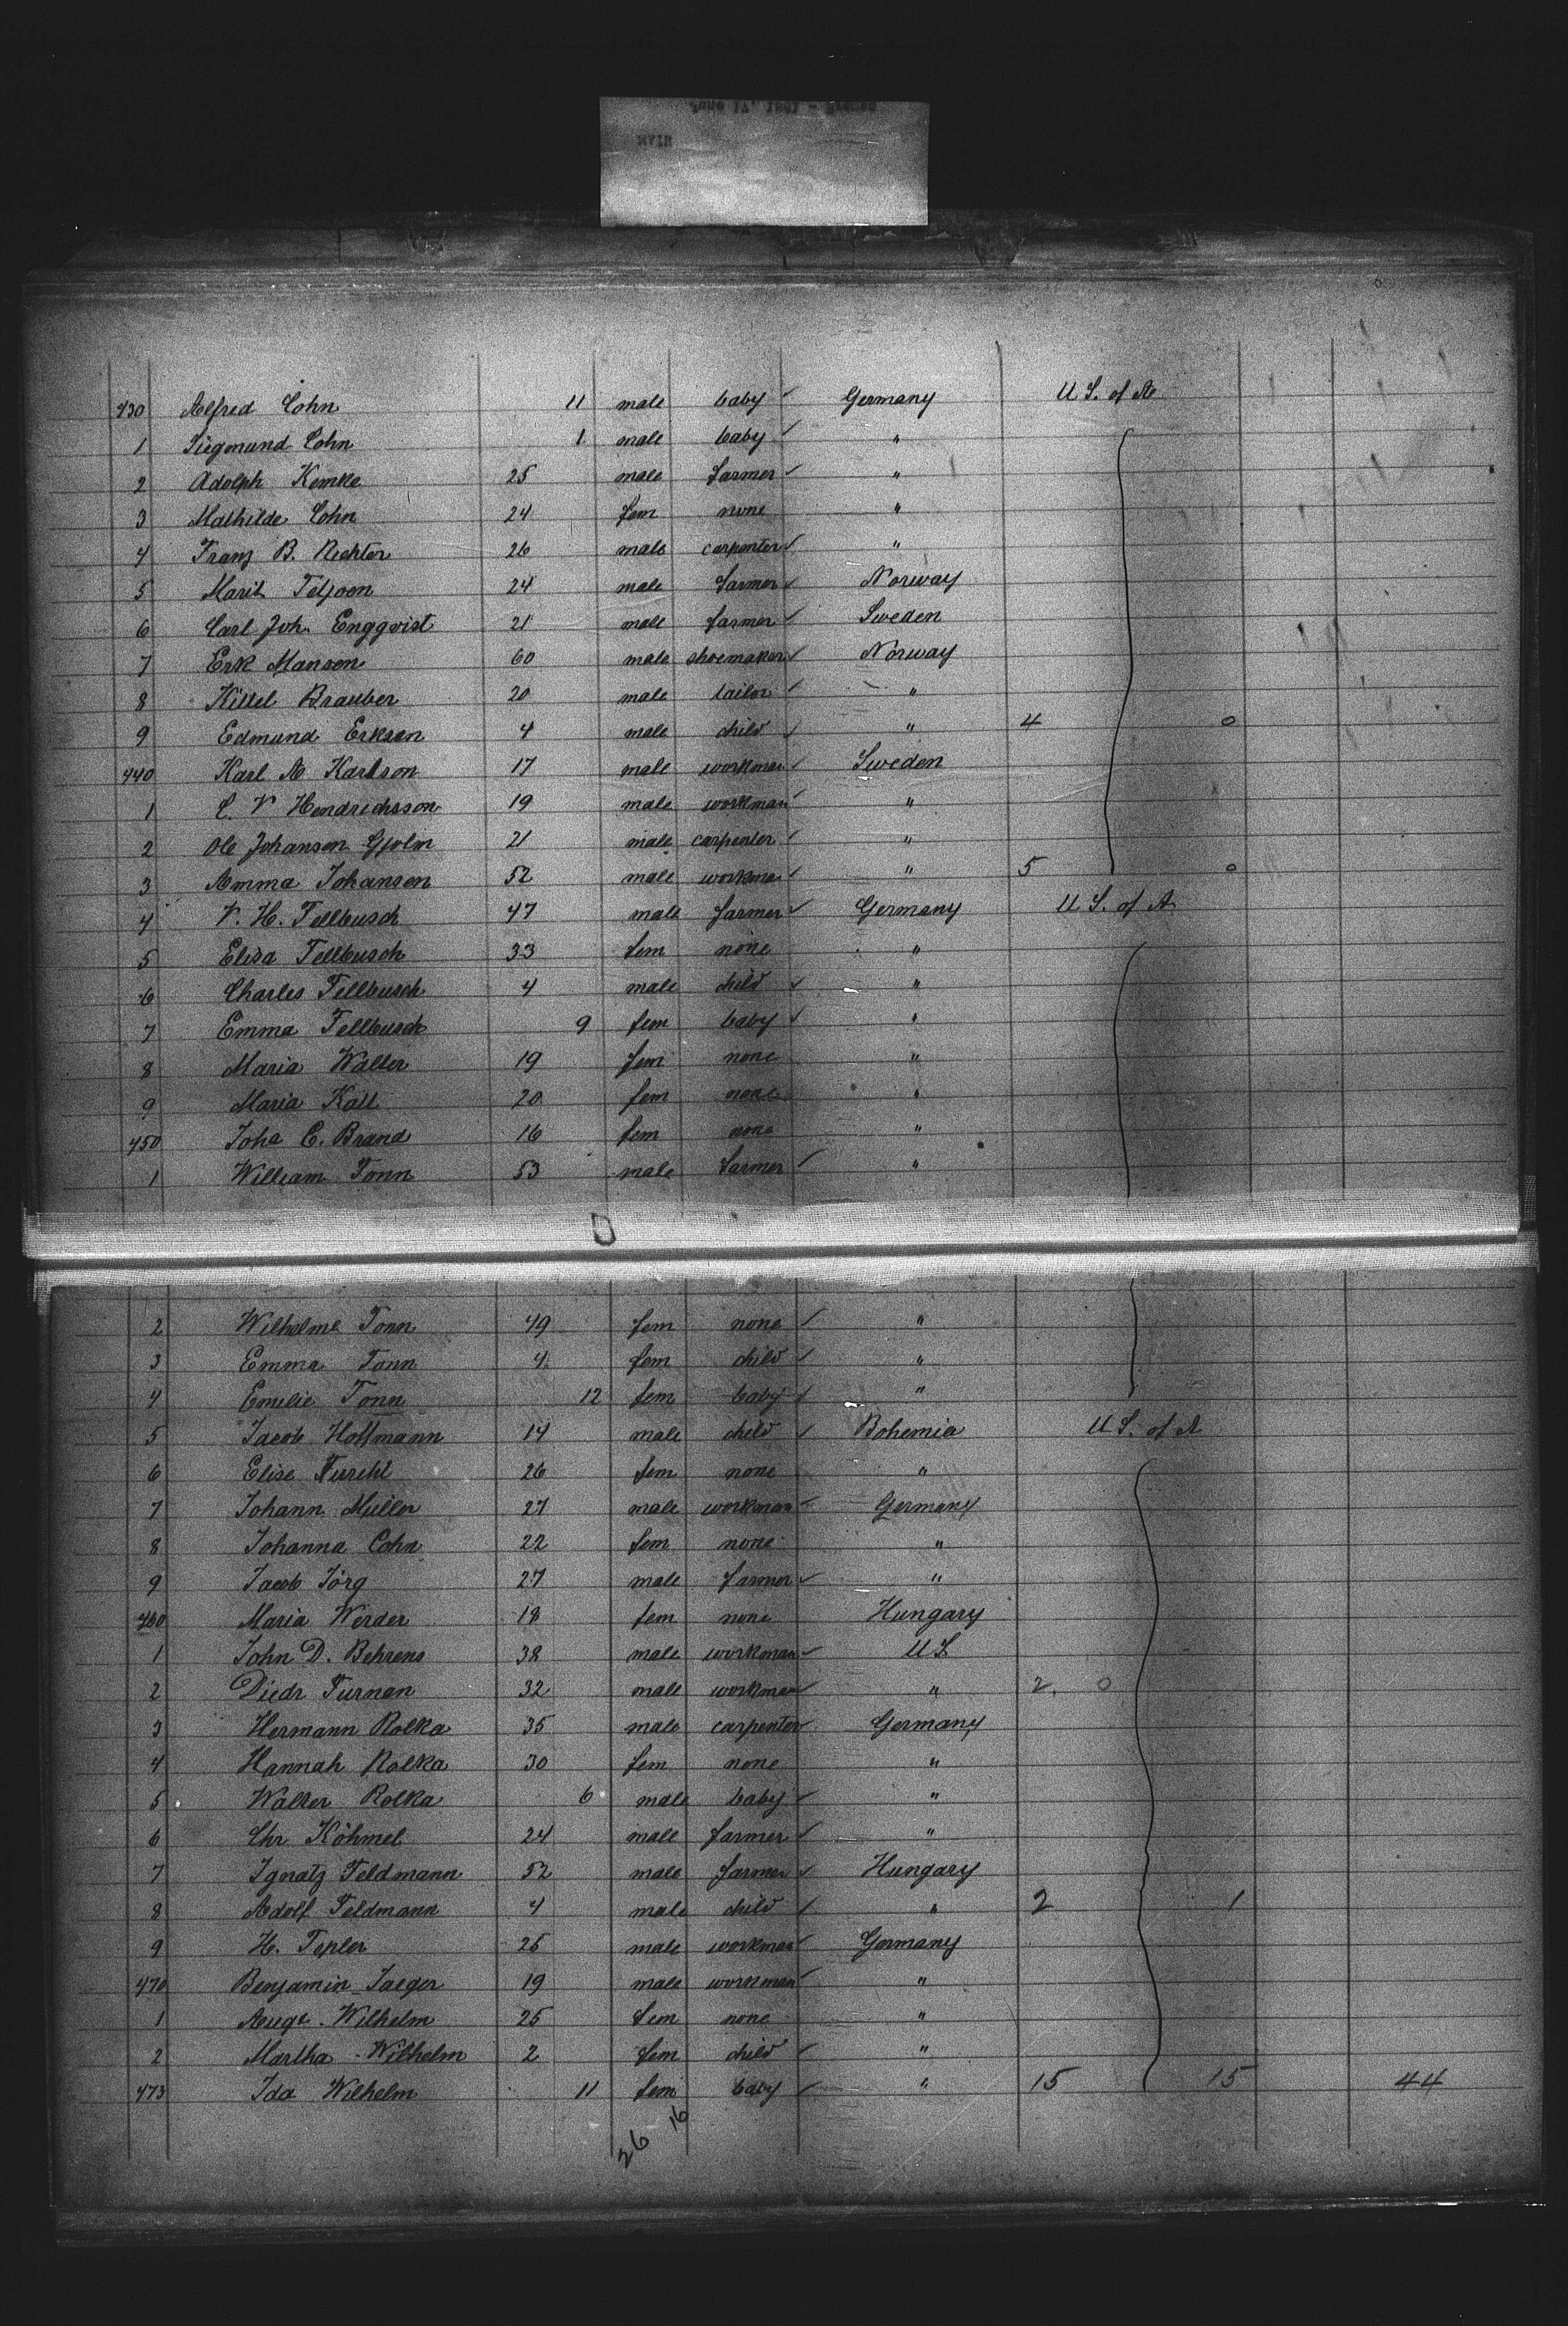 430 Alfred Cohn 11 male baby ✓ Germany U S. of A
1 Siegmund Cohn 1 male baby ✓ "
2 Adolph Kemke 25 male farmer ✓ "
3 Mathilde Cohn 24 fem none "
4 Franz B. Richter 26 male carpenter ✓ "
5 Marit 24 male farmer ✓ Norway
6 Carl Joh. Engqvist 21 male farmer ✓ Sweden
7 Erk Mansen 60 male shoemaker ✓ Norway
8 Kittel Brauber 20 male tailor ✓ "
9 Edmund Erksen 4 male child ✓ " 4 0
440 Karl A Karlson 17 male workman ✓ Sweden
1 C. V Hendrichsson 19 male workman ✓ "
2 Ole Johansen Gjolm 21 male carpenter ✓ "
3 Amma Johansen 52 male workman ✓ " 5 0
4 V. H. Tellbusch 47 male farmer ✓ Germany U S. of A
5 Elisa Tellbusch 33 fem none "
6 Charles Tellbusch 4 male child ✓ "
7 Emma Tellbusch 9 fem baby ✓ "
8 Maria Walter 19 fem none "
9 Maria Kall 20 fem none "
450 Joha C. Brand 16 fem none "
1 William Tonn 53 male farmer ✓ "
2 Wilhelme Tonn 49 fem none ✓ "
3 Emma Tonn 4 fem child ✓ "
4 Emelie Tonn 12 fem baby ✓ "
5 Jacob Hoffmann 14 male child ✓ Bohemia U S. of A
6 Elise 26 fem none "
7 Johann Müller 27 male workman ✓ Germany
8 Johanna Cohn 22 fem none "
9 Jacob Jörg 27 male farmer ✓ "
460 Maria Werder 18 fem none Hungary
1 John D. Behrens 38 male workman ✓ U S
2 Diedr Turnan 32 male workman ✓ " 2 0
3 Hermann Rolka 35 male carpenter ✓ Germany
4 Hannah Rolka 30 fem none "
5 Walter Rolka 6 male baby ✓ "
6 Chr Köhmel 24 male farmer ✓ "
7 Ignatz Feldmann 52 male farmer ✓ Hungary
8 Adolf Feldmann 4 male child ✓ " 2 1
9 H. Tepler 25 male workman ✓ Germany
470 Benjamin Jaeger 19 male workman ✓ "
1 Augt. Wilhelm 25 fem none "
2 Martha Wilhelm 2 fem child ✓ "
473 Ida Wilhelm 11 fem baby ✓ " 15 15 44
26 16